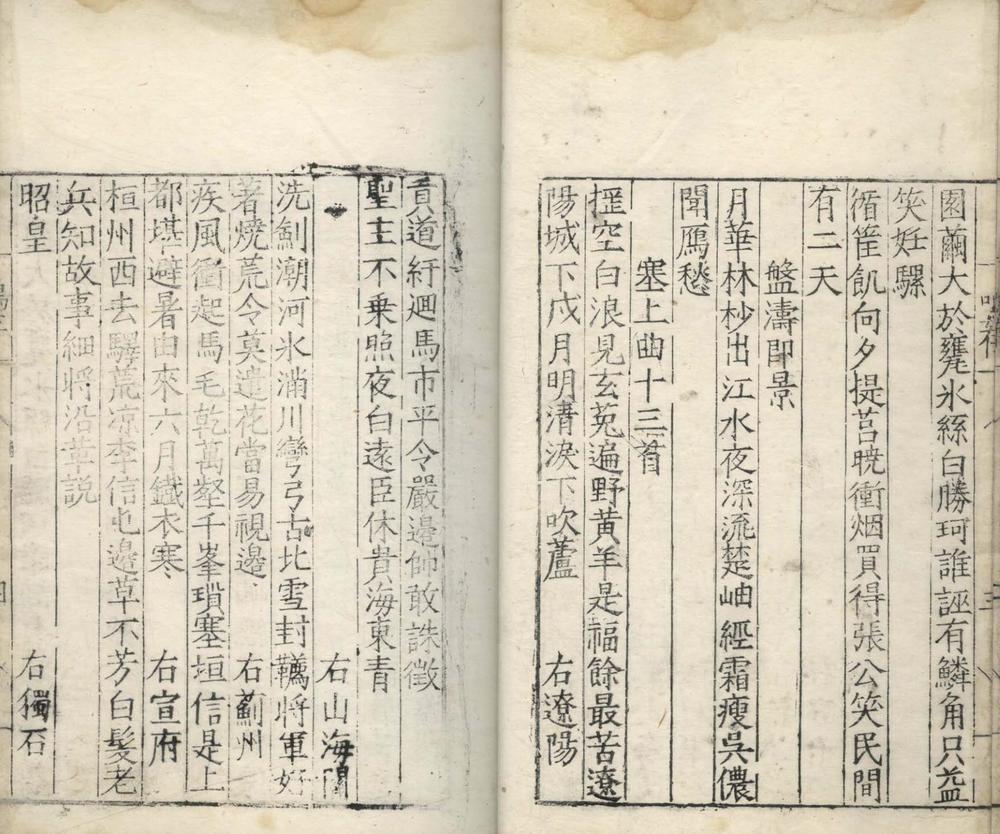 園繭大於甕氷絲白勝珂誰誣有鱗角只益
笑妊騾
循筐飢向夕提莒曉衝烟買得張公笑民間
有二天
盤濤即景
月華林杪出江水夜深流楚岫經霜瘦吳儂
聞鴈愁
塞上曲十三首
掟空白浪見玄菟遍野黄羊是福餘最苦遼
陽城下戍月明清淚下吹蘆 右遼陽
貢道紆迴馬市平令嚴邊帥敢誅徵
聖主不乗照夜白遠臣休貴海東青
右山海関
洗劍潮河氷滿川彎弓古北雪封韉將軍好
著燒荒令莫遣花當易視邊 右薊州
疾風衝起馬毛乾萬壑千峯瑣塞垣信是上
都堪避暑由來六月鐵衣寒 右宣府
桓州西去驛荒凉李信屯邊草不芳白髮老
兵知故事細將沿革説
昭皇 右獨石